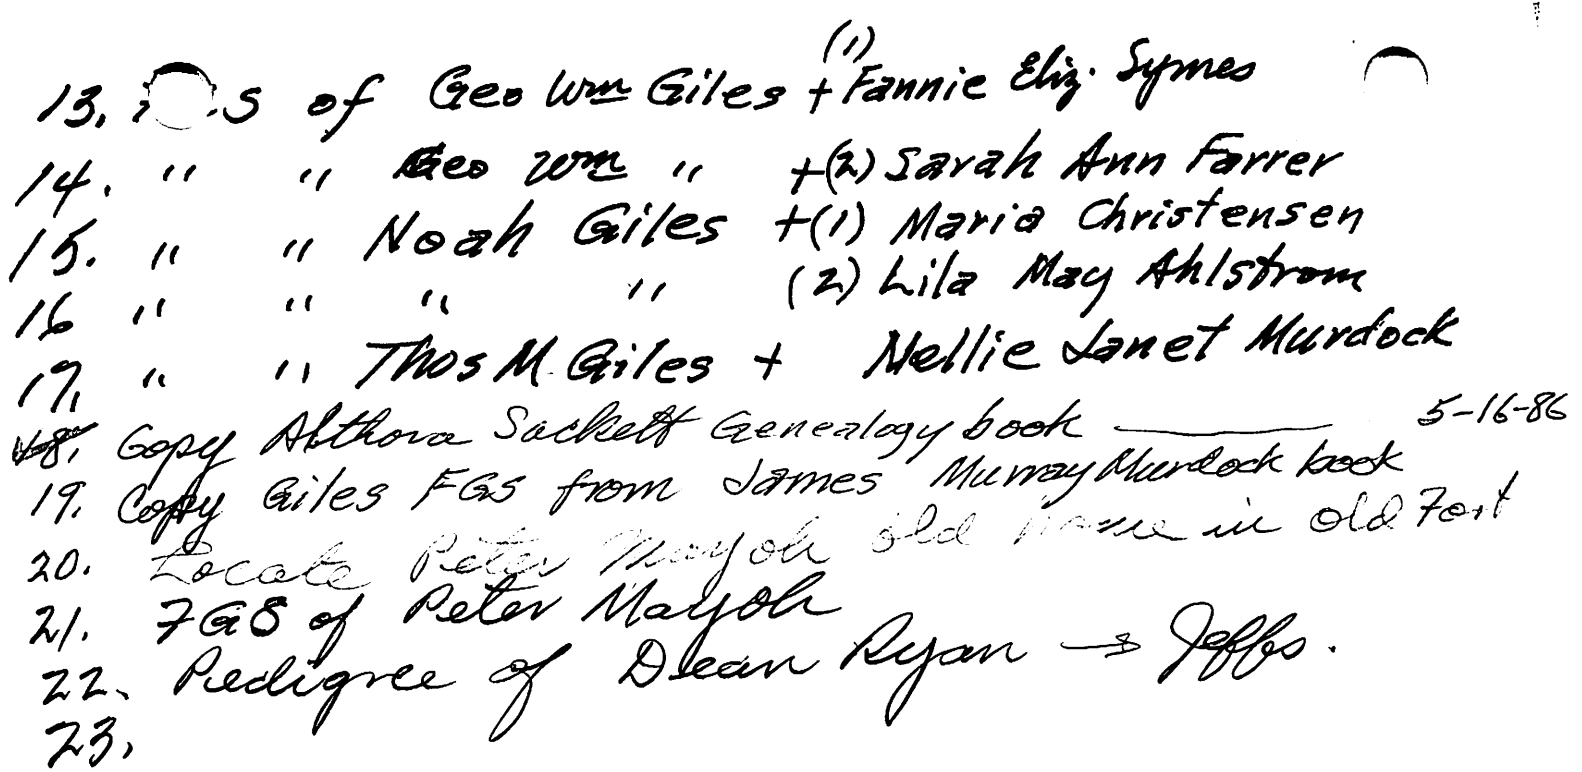 13. S of Geo Wm Giles +(1) Fannie Eliz. Symes
14. " " Geo Wm " +(2) Sarah Ann Farrer
15. " " Noah Giles +(1) Maria Christensen
16 " " " " (2) Lila May Ahlstrom
17. " " Thos M. Giles + Nellie Janet Murdock
18. Copy Althora Sackett Genealogy book — 5-16-86
19. Copy Giles FGS from James Murray Murdock book
20. Locate Peter Mayoh old in old Fort
21. FGS of Peter Mayoh
22. Pedigree of Dean Ryan → Jeffs.
23.